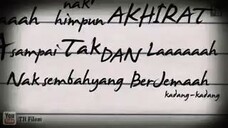 nak
aaah himpun AKHIRAT
sampai Tak DAN Laaaaaah
Nak sembahyang Berjemaah
kadang-kadang
You
TR Films